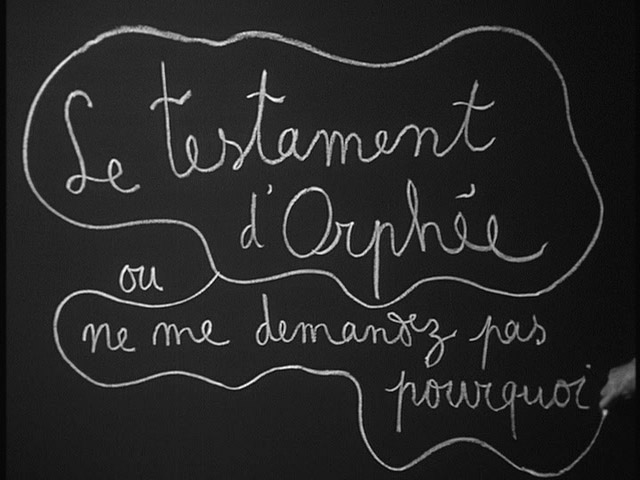 Le testament
d'Orphée
ou
ne me demandez pas
pourquoi